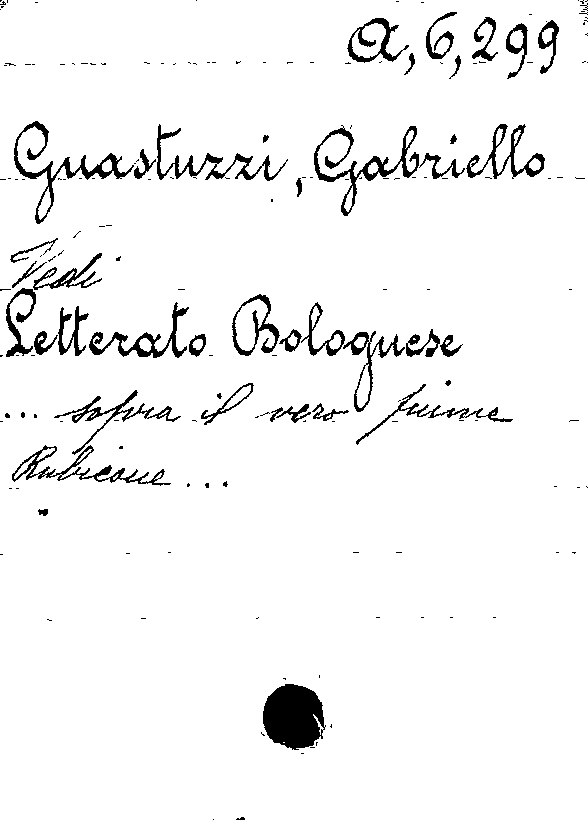 A, 6, 299
Guastuzzi, Gabriello
Vedi
Letterato Bolognese
... sopra il vero fiume
Rubicone...